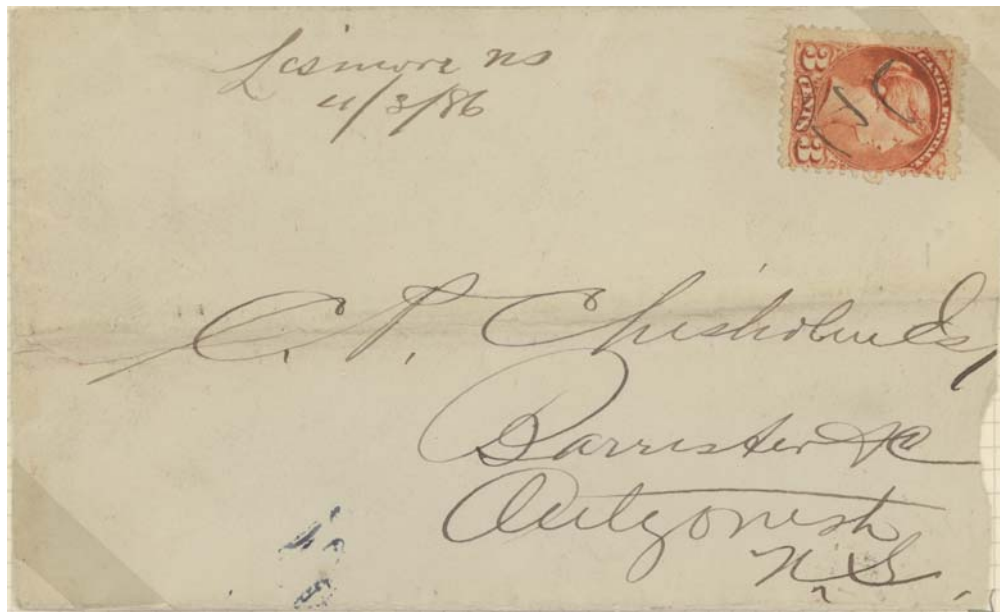 Lismore NS
11/3/86
CANADA POSTAGE
3 CENTS 3
C. P. Chisholm Esq
Barrister &c
Antigonish
N.S.